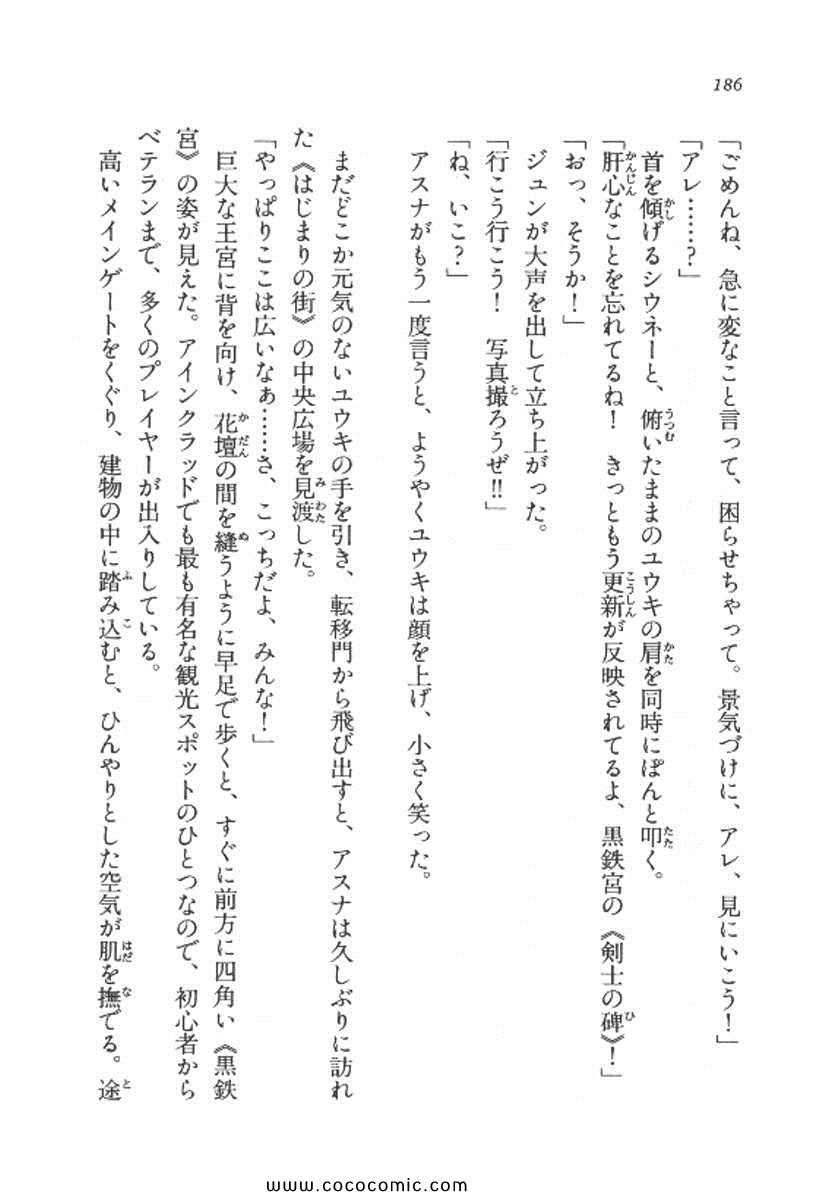 186
「ごめんね、急に変なこと言って、困らせちゃって。景気づけに、アレ、見にいこう！」
「アレ……？」
首を傾げるシウネーと、俯いたままのユウキの肩を同時にぽんと叩く。
「肝心なことを忘れてるね！　きっともう更新が反映されてるよ、黒鉄宮の《剣士の碑》！」
「おっ、そうか！」
ジュンが大声を出して立ち上がった。
「行こう行こう！　写真撮ろうぜ!!」
「ね、いこ？」
アスナがもう一度言うと、ようやくユウキは顔を上げ、小さく笑った。
まだどこか元気のないユウキの手を引き、転移門から飛び出すと、アスナは久しぶりに訪れ
た《はじまりの街》の中央広場を見渡した。
「やっぱりここは広いなぁ……さ、こっちだよ、みんな！」
巨大な王宮に背を向け、花壇の間を縫うように早足で歩くと、すぐに前方に四角い《黒鉄
宮》の姿が見えた。アインクラッドでも最も有名な観光スポットのひとつなので、初心者から
ベテランまで、多くのプレイヤーが出入りしている。
高いメインゲートをくぐり、建物の中に踏み込むと、ひんやりとした空気が肌を撫でる。途
www.cococomic.com